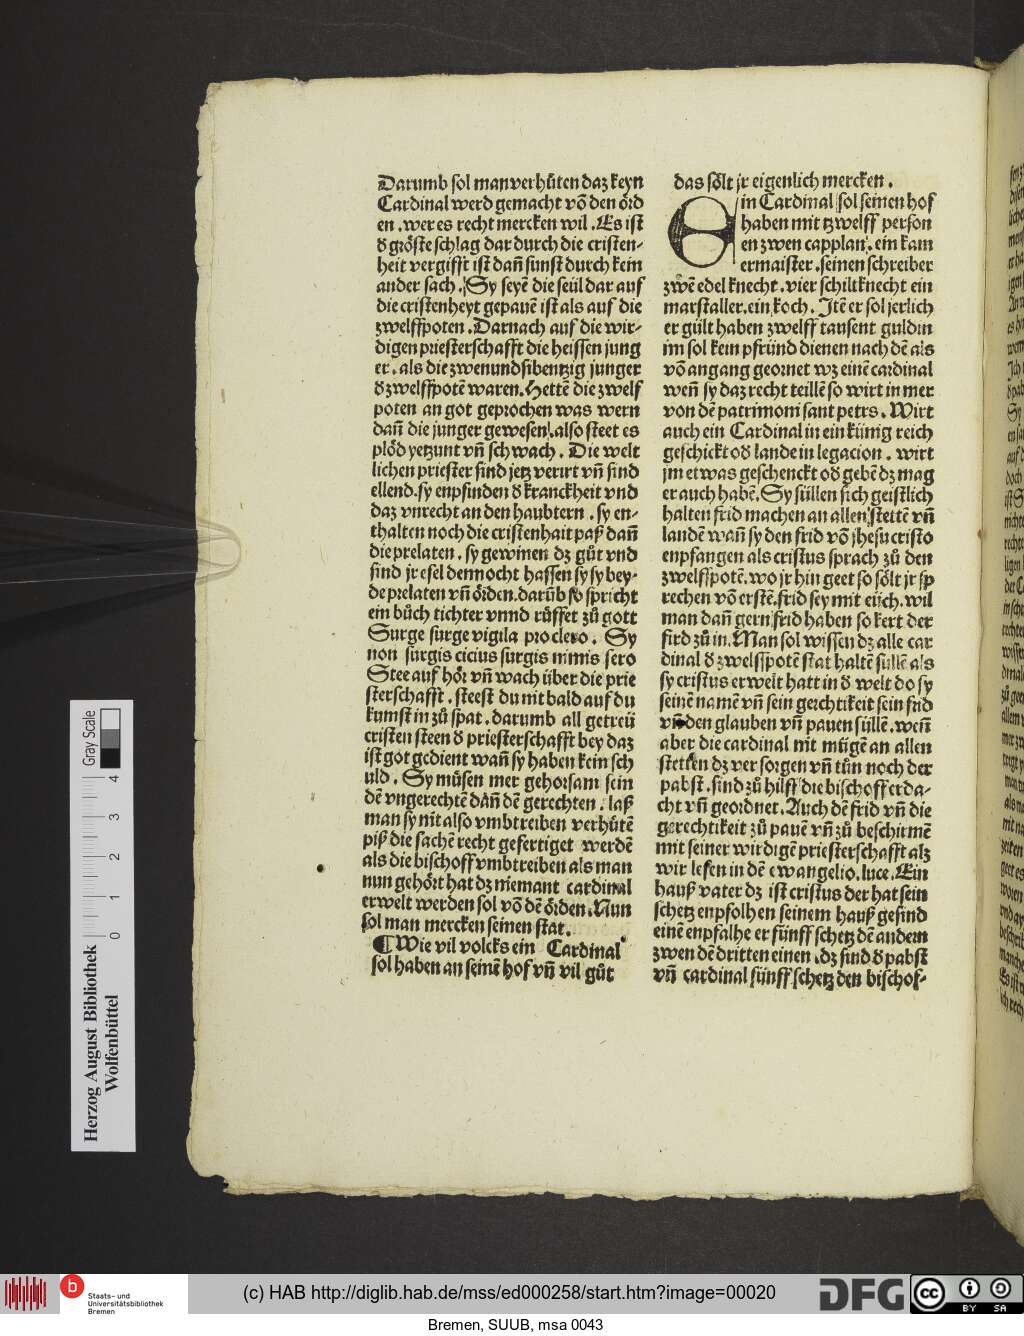 Darumb sol man verhüten daz keyn
Cardinal werd gemacht võ den örd
en . wer es recht mercken wil . Es ist
d̕ gröste schlag dar durch die cristen-
heit vergifft ist dañ sunst durch kein
ander sach . Sy seyẽ die seül dar auf
die cristenheyt gepauẽ ist als auf die
zwelffpoten . Darnach auf die wir-
digen priesterschafft die heissen jung
er . als die zwenundsibentzig junger
d̕ zwelffpotẽ waren . Hettẽ die zwelf
poten an got geprochen was wern
dañ die junger gewesen . also steet es
plöd yetzunt vñ schwach . Die welt
lichen priester sind jetz verirt vñ sind
ellend . sy enpfinden d̕ kranckheit vnd
daz vnrecht an den haubtern . sy en-
thalten noch die cristenhait paß dañ
die prelaten . sy gewinen dz gůt vnd
sind jr esel dennocht hassen sy sy bey-
de prelaten vñ örden . darüb so spricht
ein bůch tichter vnnd růffet zů gott
Surge surge vigila pro clero . Sy
non surgis cicius surgis nimis sero
Stee auf hör vñ wach über die prie
sterschafft . steest du nit bald auf du
kumst in zů spat . darumb all getreü
cristen steen d̕ priesterschafft bey daz
ist got gedient wañ sy haben kein sch
uld . Sy müsen mer gehorsam sein
dẽ vngerechtẽ dañ dẽ gerechten . laß
man sy nit also vmbtreiben verhütẽ
piß die sachẽ recht gefertiget werdẽ
als die bischoff vmbtreiben als man
nun gehört hat dz niemant cardinal
erwelt werden sol võ dẽ örden . Nun
sol man mercken seinen stat .
¶ Wie vil volcks ein Cardinal
sol haben an seinẽ hof vñ vil gůt
das sölt jr eigenlich mercken .
Ein Cardinal sol seinen hof
haben mit tzwelff person
en zwen capplan . ein kam
ermaister . seinen schreiber
zwẽ edel knecht . vier schiltknecht ein
marstaller . ein koch . Jtẽ er sol jerlich
er gült haben zwelff tausent guldin
im sol kein pfründ dienen nach dẽ als
võ angang geornet wz einẽ cardinal
weñ sy daz recht teillẽ so wirt in mer
von dẽ patrimoni sant petrs . Wirt
auch ein Cardinal in ein künig reich
geschickt od̕ lande in legacion . wirt
jm etwas geschenckt od̕ gebẽ dz mag
er auch habẽ . Sy süllen sich geistlich
halten frid machen an allen stettẽ vñ
landẽ wañ sy den frid võ jhesu cristo
enpfangen als cristus sprach zů den
zwelffpotẽ . wo jr hin geet so sölt jr sp
rechen võ erstẽ . frid sey mit eüch . wil
man dañ gern frid haben so kert der
fird zů in . Man sol wissen dz alle car
dinal d̕ zwelffpotẽ stat haltẽ süllẽ als
sy cristus erwelt hatt in d̕ welt do sy
seinẽ namẽ vñ sein gerchtikeit sein frid
vñ den glauben vñ pauen süllẽ . weñ
aber die cardinal nit mügẽ an allen
stetten dz versorgen vñ tůn noch der
pabst . sind zů hilff die bischoff erda-
cht vñ geordnet . Auch dẽ frid vñ die
gerechtikeit zů pauẽ vñ zů beschirmẽ
mit seiner wirdigẽ priesterschafft alz
wir lesen in dẽ ewangelio . luce . Ein
hauß vater dz ist cristus der hat sein
schetz enpfolhen seinem hauß gesind
einẽ enpfalhe er fünff schetz dẽ andern
zwen dẽ dritten einen . dz sind d̕ pabst
vñ cardinal fünff schetz den bischof-
Gray Scale
0 1 2 3 4
Herzog August Bibliothek
Wolfenbüttel
Staats- und
Universitätsbibliothek
Bremen
(c) HAB http://diglib.hab.de/mss/ed000258/start.htm?image=00020
DFG
cc BY SA
Bremen, SUUB, msa 0043